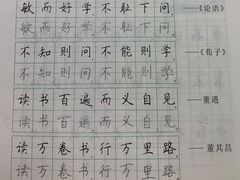 敏而好学不耻下问。 ——《论语》
敏而好学不耻下问。
不知则问,不能则学。 ——《荀子》
不知则问,不能则学。
读书百遍,而义自见。 ——董遇
读书百遍,而义自见。
读万卷书,行万里路。 ——董其昌
读万卷书,行万里路。